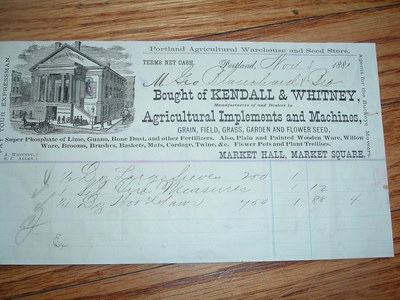 Portland Agricultural Warehouse and Seed Store.
TERMS NET CASH.
Portland, Nov 1881
M Geo Blanchard & Bro
Bought of KENDALL & WHITNEY,
Manufacturers of and Dealers in
Agricultural Implements and Machines,
GRAIN, FIELD, GRASS, GARDEN AND FLOWER SEED,
Super Phosphate of Lime, Guano, Bone Dust, and other Fertilizers. Also, Plain and Painted Wooden Ware, Willow
Ware, Brooms, Brushes, Baskets, Mats, Cordage, Twine, &c. Flower Pots and Plant Trellises.
MARKET HALL, MARKET SQUARE.
EXPRESSMAN.
Agents for the Buckeye Mowers.
A. WHITNEY,
Doz Large Sieves 200
Measures 1 12
Doz Wood Saws 450 1 88 4